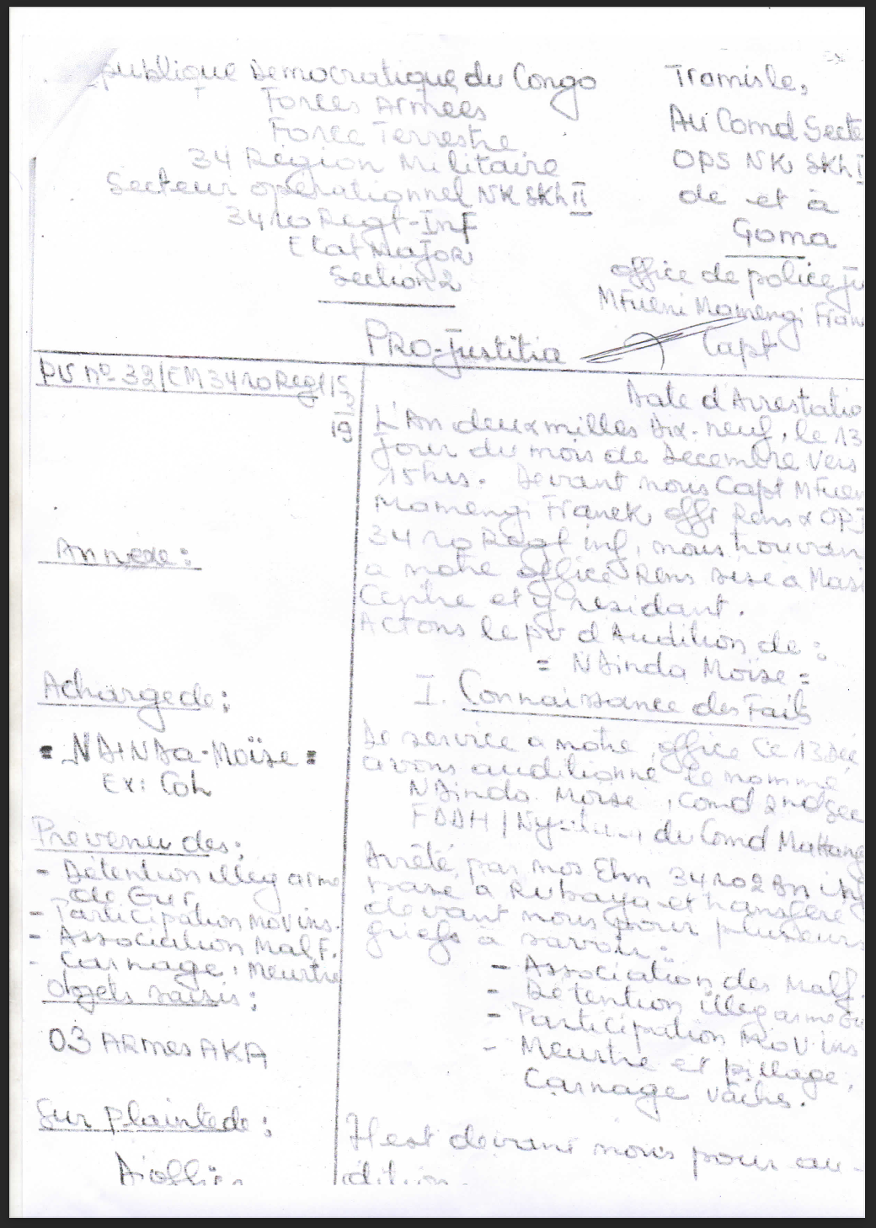 publique Democratique du Congo
Forces Armees
Force Terrestre
34 Region Militaire
Secteur operationnel NK SKh II
3410 Regt-Inf
Etat Major
Section 2
Tramisle,
Au Comd Secte
OPS NK SKh I
de et à
Goma
office de police ju
Mfueni Mamengi Fran
Capt
PRO-Justitia
PV nº 32/EM 3410 Regt 15
2
19
Annexe :
A charge de :
= NDINDA-Moïse =
Ex : Coh
Prevenu des :
- Détention illeg arme
de Gur
- Participation Mov ins.
- Association Malf.
- Carnage, Meurtre
Objets saisis :
03 ARMES AKA
Sur plainte de :
Date d'Arrestatio
L'An deux milles dix-neuf, le 13
Jour du mois de Decembre vers
15hrs. Devant nous Capt Mfuen
Mamengi Franck, offr Rens & OPJ
3410 Regt inf, nous trouvan
a notre office Rens sise a Masi
Centre et y residant.
Actons le pv d'Audition de :
= NDinda Moïse =
I. Connaissance des Faits
De service a notre office Ce 13 Déc
avons auditionné le nommé
NDinda Moïse, Comd 2nd
du Comd
Arrêté par nos Elm 34102Bn inf
base a Rubaya et transféré
devant nous pour plusieurs
griefs à savoir :
- Association des Malf.
- Détention illeg arme
- Participation Mov ins
- Meurtre et pillage,
Carnage vachs.
Il est devant nous pour au-
dition.